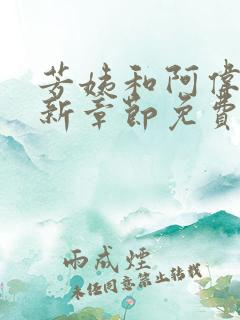 芳姨和阿偉
新章節免費
雨成煙
未任同意禁止轉載